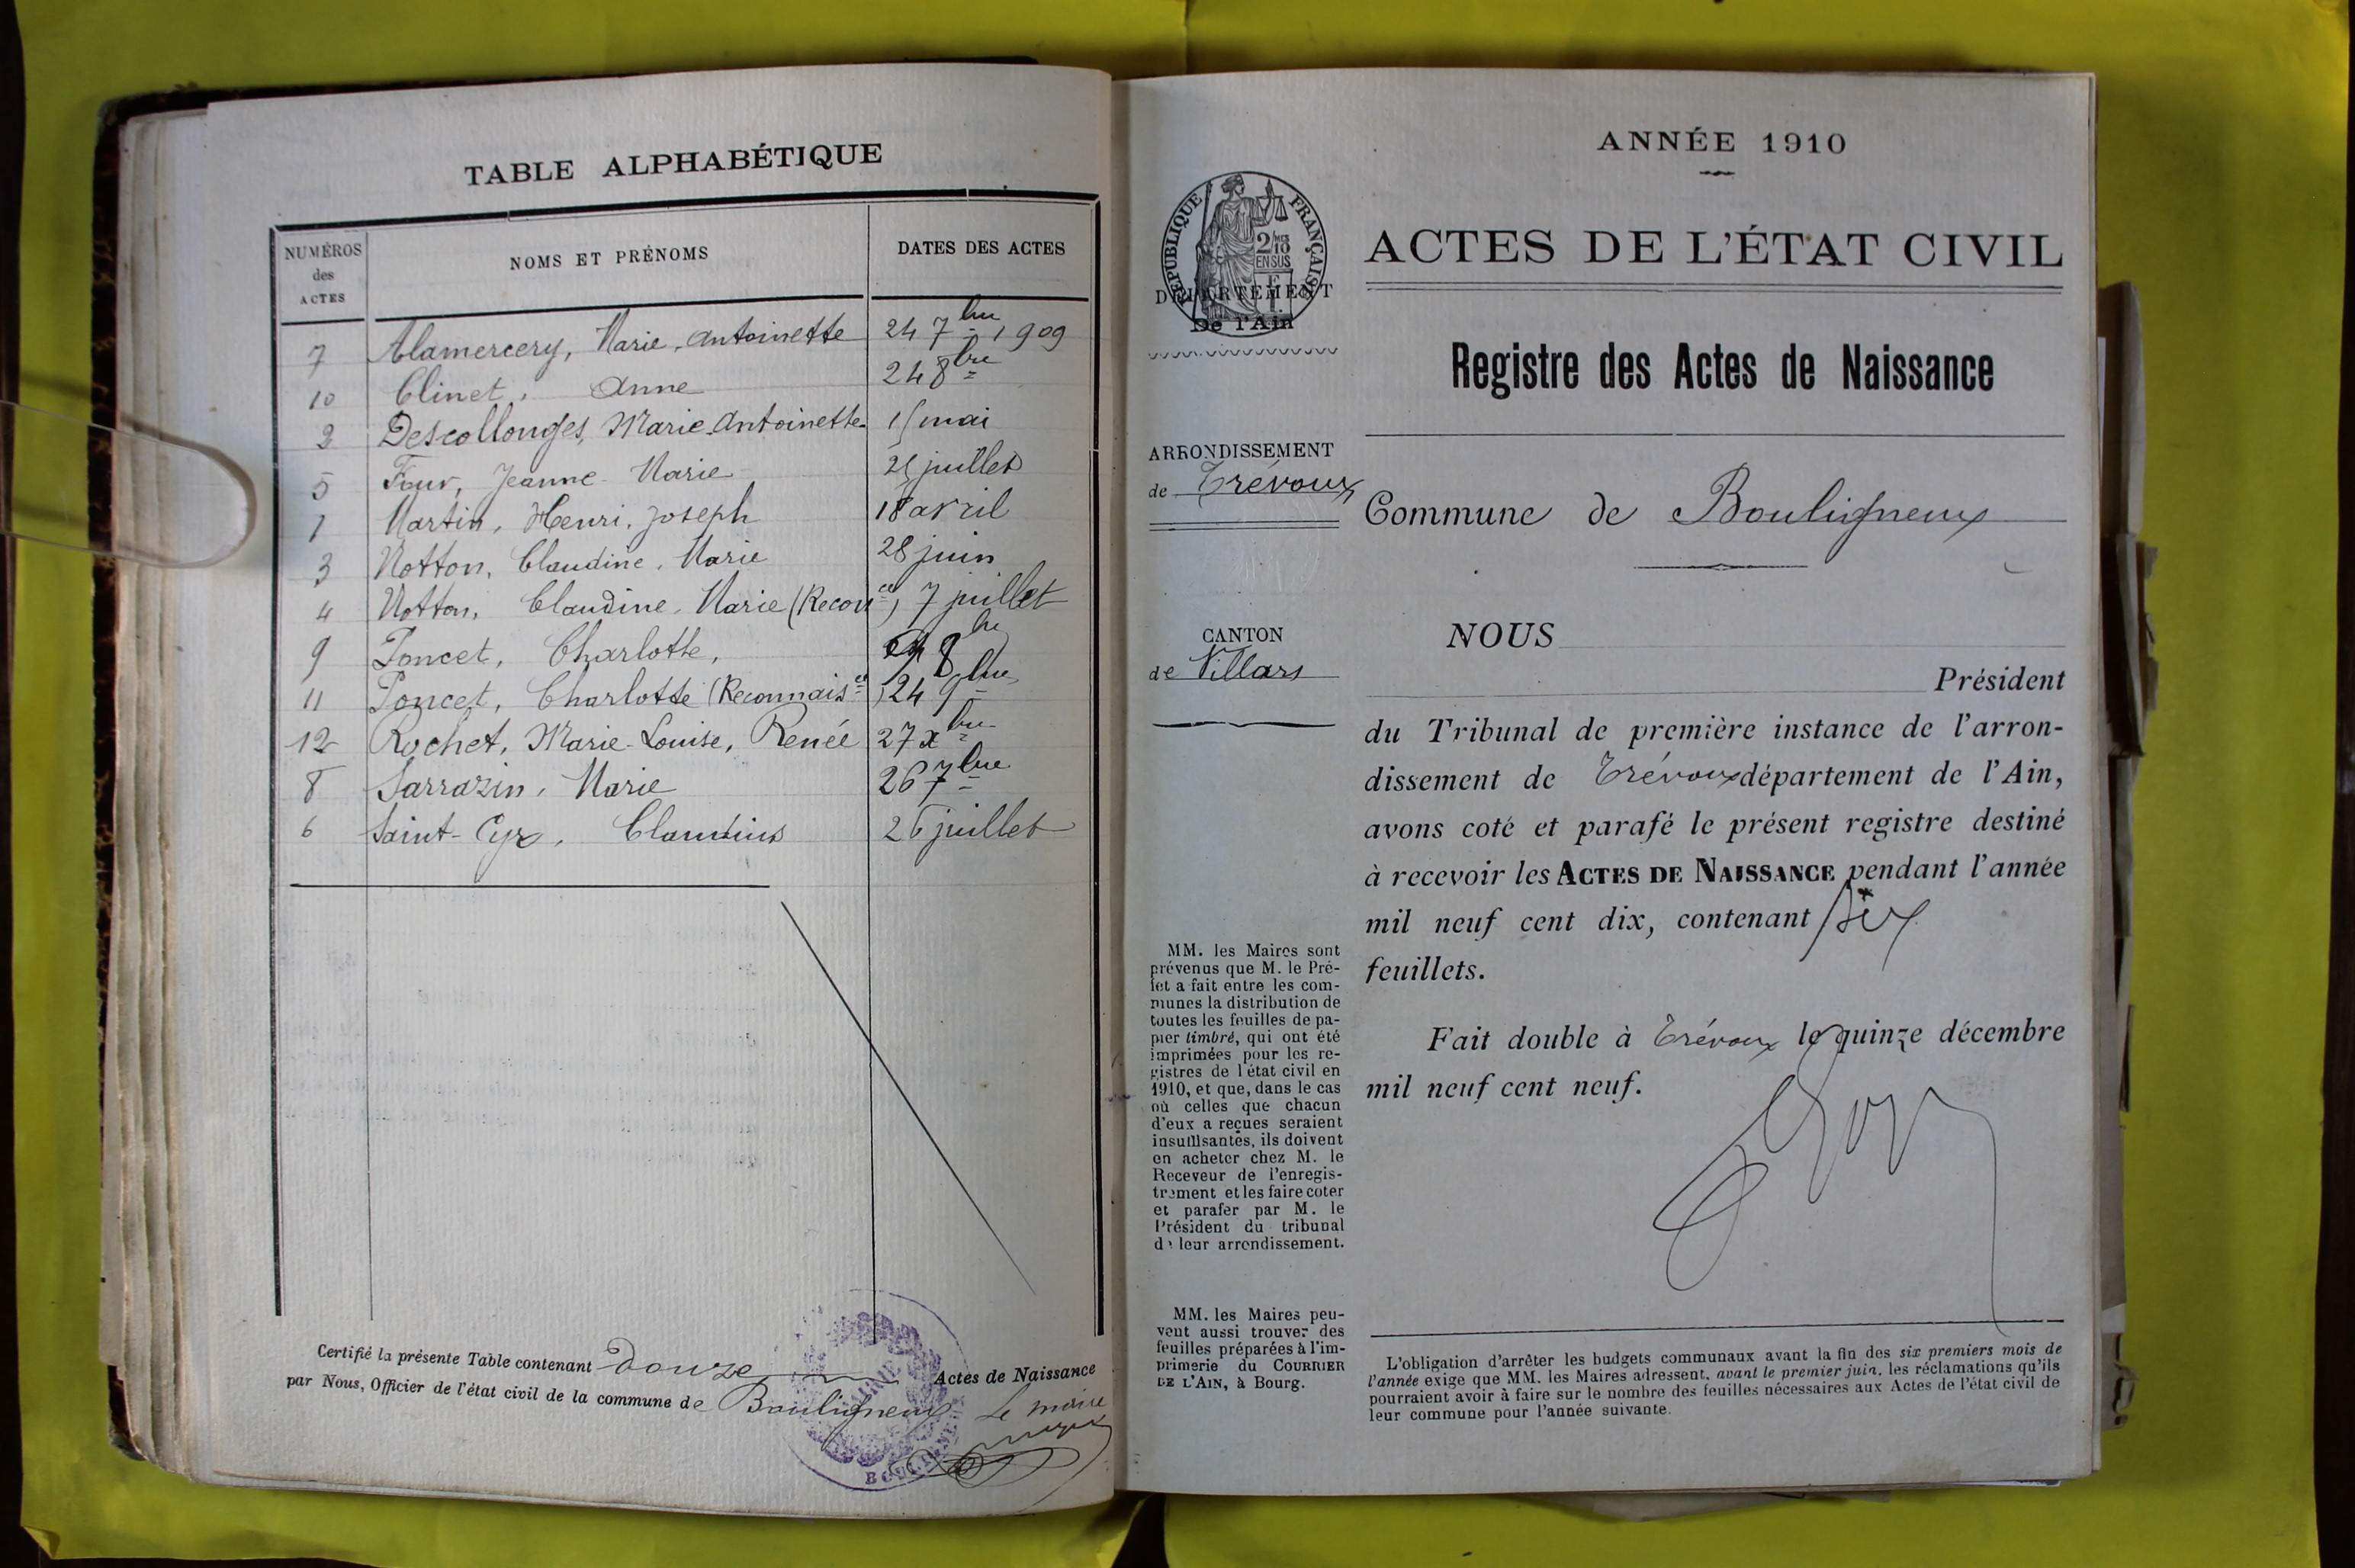 TABLE ALPHABÉTIQUE
NUMÉROS
des
ACTES
NOMS ET PRÉNOMS
DATES DES ACTES
7 Alamercery, Marie, Antoinette 24 7bre 1909
10 Clinet, Anne 24 8bre
2 Descollonges, Marie-Antoinette 15 mai
5 Jeanne-Marie juillet
1 Martin, Henri, Joseph 18 avril
3 Notton, Claudine, Marie 28 juin
4 Notton, Claudine, Marie (Reconce) 7 juillet
9 Poncet, Charlotte, 8bre
11 Poncet, Charlotte (Reconnaisce) 24 9bre
12 Rochet, Marie-Louise, Renée 27 xbre
8 Sarrazin, Marie 26 7bre
6 Saint-Cyr, Claudius 26 juillet
Certifié la présente Table contenant douze Actes de Naissance
par Nous, Officier de l'état civil de la commune de Bouligneux Le maire
MAIRIE
ANNÉE 1910
RÉPUBLIQUE FRANÇAISE
2/10mes
EN SUS
DÉPARTEMENT
De l'Ain
ACTES DE L'ÉTAT CIVIL
Registre des Actes de Naissance
ARRONDISSEMENT
de Trévoux
Commune de Bouligneux
CANTON
de Villars
NOUS
Président
du Tribunal de première instance de l'arron-
dissement de Trévoux département de l'Ain,
avons coté et parafé le présent registre destiné
à recevoir les ACTES DE NAISSANCE pendant l'année
mil neuf cent dix, contenant six
feuillets.
Fait double à Trévoux le quinze décembre
mil neuf cent neuf.
MM. les Maires sont
prévenus que M. le Pré-
fet a fait entre les com-
munes la distribution de
toutes les feuilles de pa-
pier timbré, qui ont été
imprimées pour les re-
gistres de l'état civil en
1910, et que, dans le cas
où celles que chacun
d'eux a reçues seraient
insuffisantes, ils doivent
en acheter chez M. le
Receveur de l'enregis-
trement et les faire coter
et parafer par M. le
Président du tribunal
de leur arrondissement.
MM. les Maires peu-
vent aussi trouver des
feuilles préparées à l'im-
primerie du COURRIER
DE L'AIN, à Bourg.
L'obligation d'arrêter les budgets communaux avant la fin des six premiers mois de
l'année exige que MM. les Maires adressent, avant le premier juin, les réclamations qu'ils
pourraient avoir à faire sur le nombre des feuilles nécessaires aux Actes de l'état civil de
leur commune pour l'année suivante.